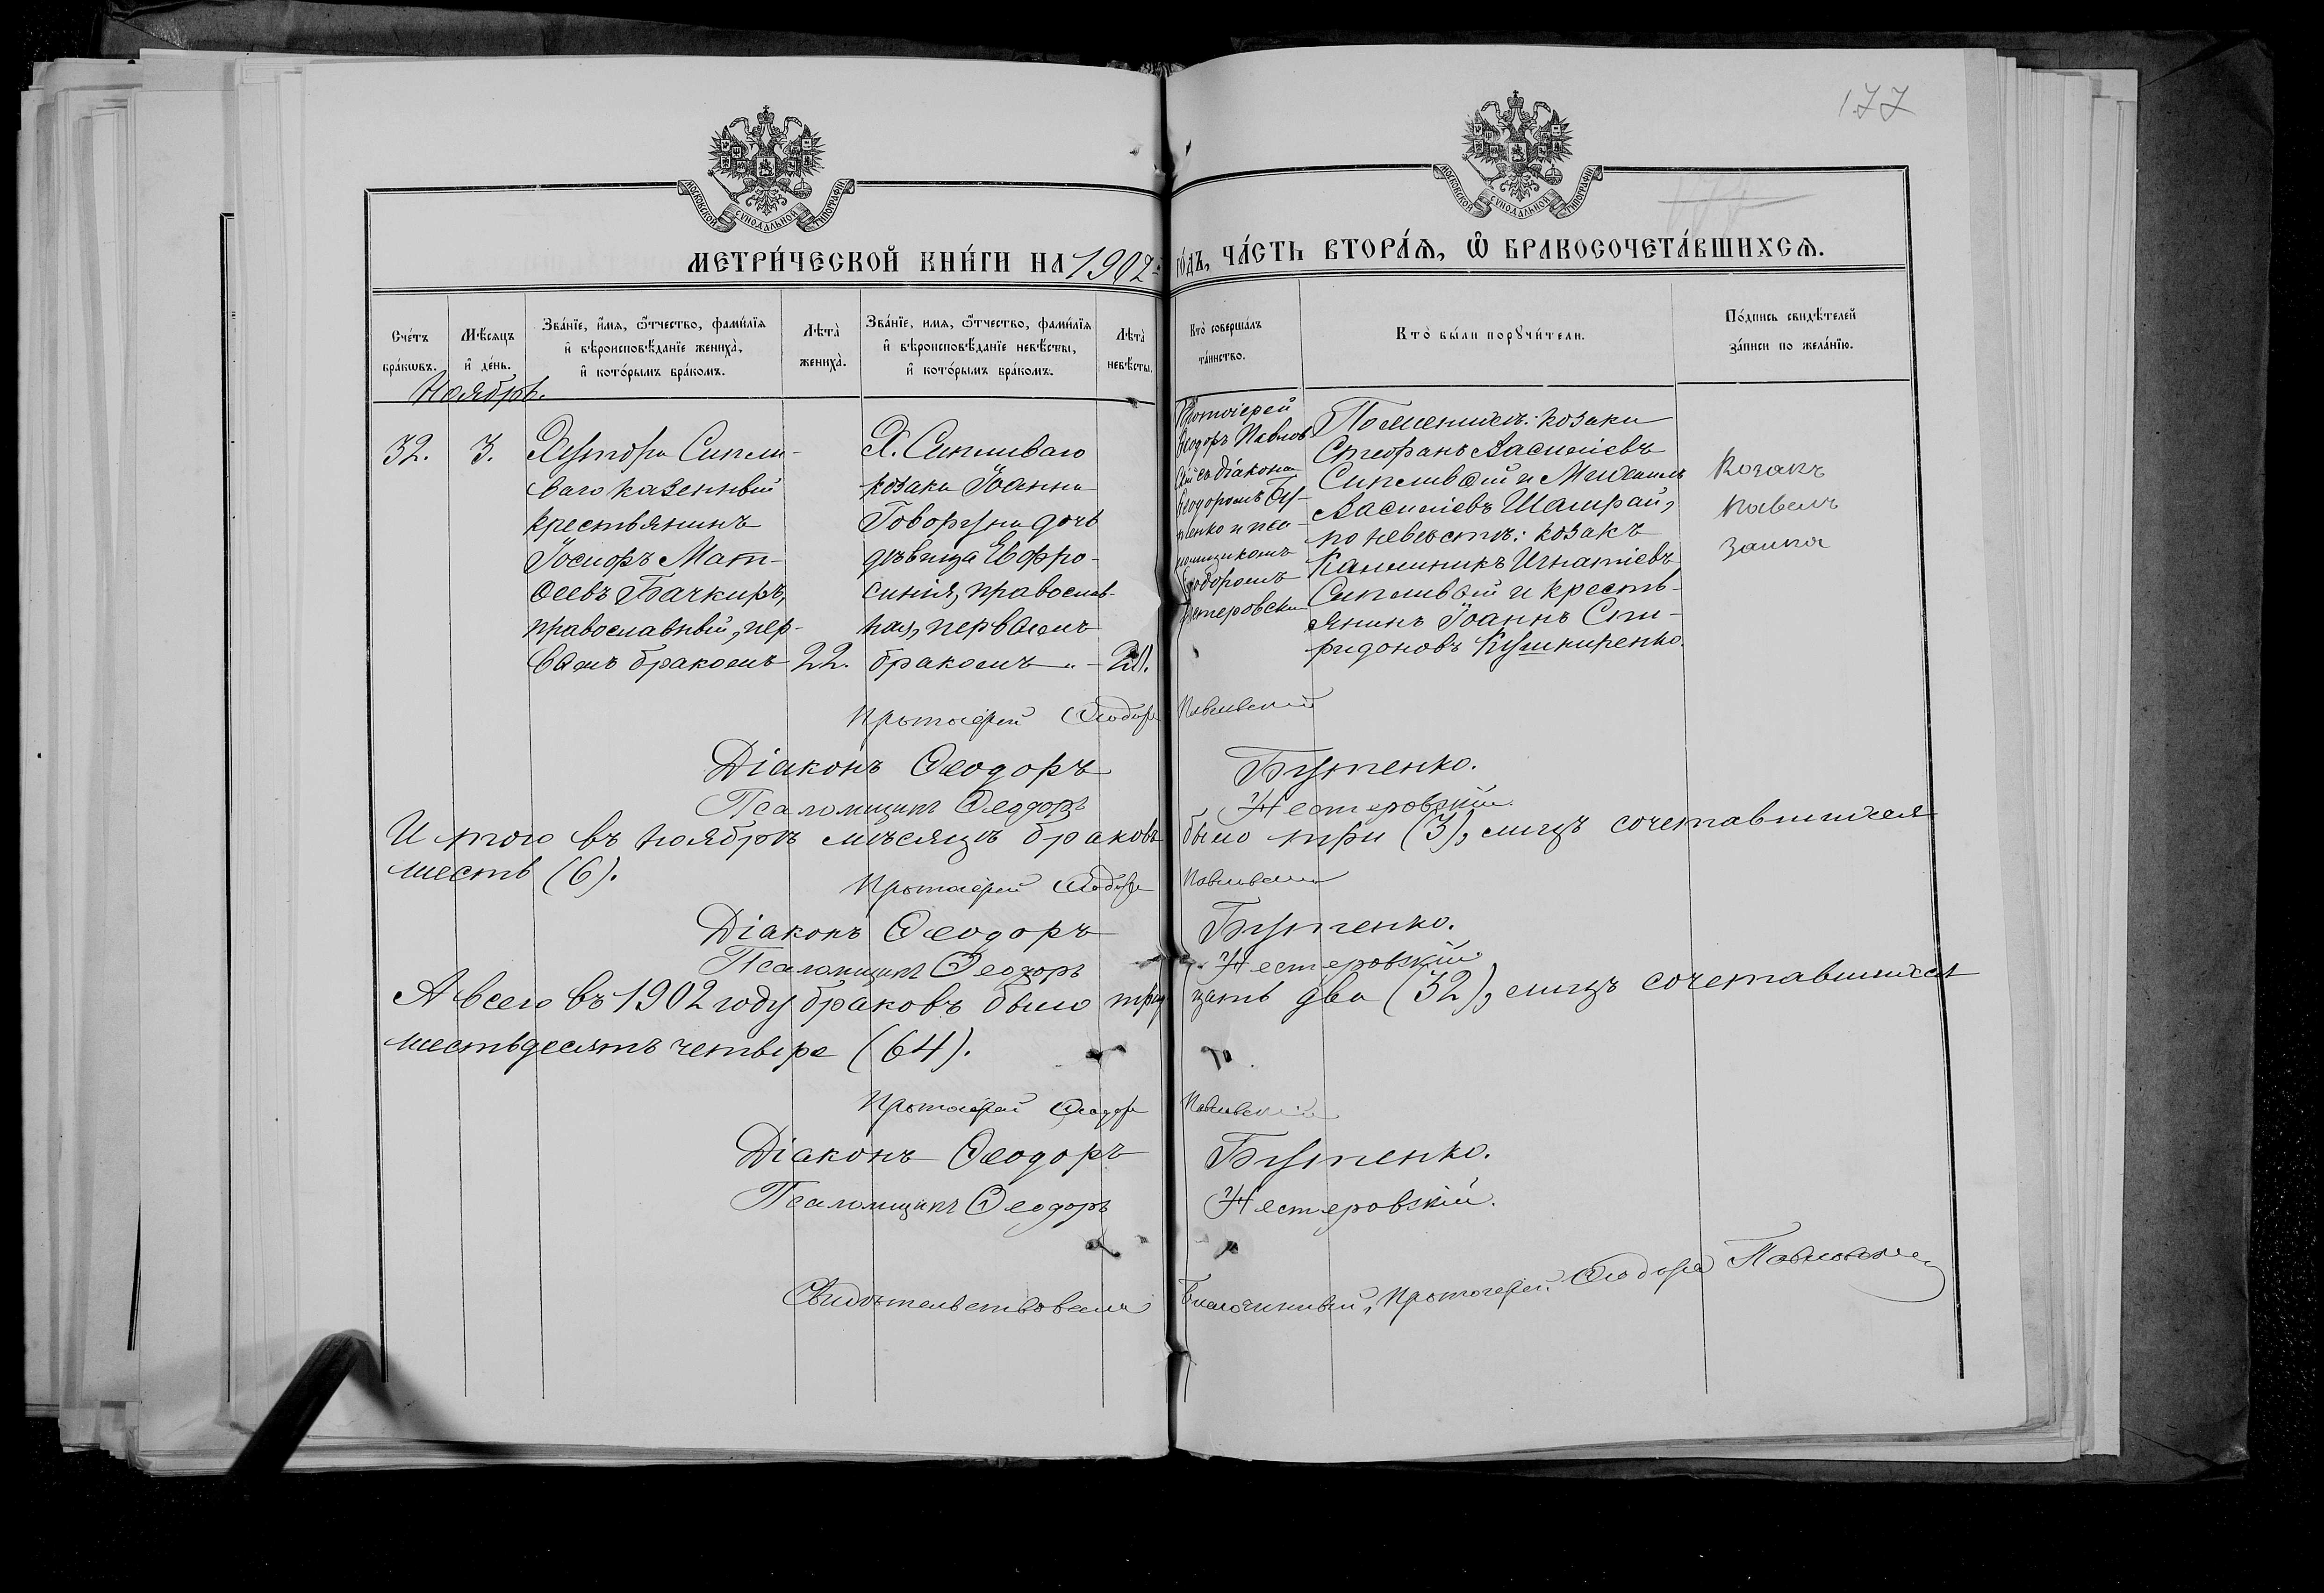 177
МОСКОВСКОЙ СУНОДАЛЬНОЙ ТИПОГРАФІИ
МОСКОВСКОЙ СУНОДАЛЬНОЙ ТИПОГРАФІИ
МЕТРИ́ЧЕСКОЙ КНИ́ГИ НА 1902 ГО́ДЪ, ЧА́СТЬ ВТОРА́Я, Ѽ БРАКОСОЧЕТА́ВШИХСЯ.
Сче́тъ
бра́кѡвъ.
Мѣ́сяцъ
и҆ де́нь.
Зва́нїе, и҆́мя, ѻ҆́тчество, фами́лїя
и҆ вѣроисповѣ́данїе жениха̀,
и҆ кото́рымъ бра́комъ.
Лѣта̀
жениха̀.
Зва́нїе, имя, ѻ҆́тчество, фами́лїя
и҆ вѣроисповѣ́данїе невѣ́сты,
и҆ кото́рымъ бра́комъ.
Лѣта̀
невѣ́сты.
Кто̀ соверша́лъ
та́инство.
Кто̀ бы́ли порꙋчи́тели.
По́дпись свидѣ́телей
за́писи по жела́нїю.
Ноябрь.
32.
3.
Хутора Сипли-
ваго казенный
крестьянинъ
Іосифъ Мат-
ѳеевъ Бачкиръ,
православный, пер-
вымъ бракомъ
22.
Х. Сипливаго
козака Іоанна
Говоруна дочь
дѣвица Евфро-
синія, православ-
ная, первымъ
бракомъ
20.
Протоіерей
Ѳеодоръ Павлов
скій съ діакона
Ѳеодоромъ Бу-
тенко и пса-
ломщикомъ
Ѳеодоромъ
Нестеровски
По женихѣ: козаки
Стефанъ Василіевъ
Сипливый и Михаилъ
Василіевъ Шамрай,
по невѣстѣ: козакъ
Каллиникъ Игнатіевъ
Сипливый и кресть-
янинъ Іоаннъ Спи-
ридоновъ Кушниренко.
Козакъ
Павелъ
Заика
Протоіерей Ѳеодоръ Павловскій
Діаконъ Ѳеодоръ Бутенко.
Псаломщикъ Ѳеодоръ Нестеровскій.
Итого въ ноябрѣ мѣсяцѣ браковъ было три (3), лицъ сочетавшихся
шесть (6).
Протоіерей Ѳеодоръ Павловскій
Діаконъ Ѳеодоръ Бутенко.
Псаломщикъ Ѳеодоръ Нестеровскій.
А всего въ 1902 году браковъ было тридцать два (32), лицъ сочетавшихся
шестьдесятъ четыре (64).
Протоіерей Ѳеодоръ Павловскій
Діаконъ Ѳеодоръ Бутенко.
Псаломщикъ Ѳеодоръ Нестеровскій.
Свидѣтельствовалъ Благочинный, Протоіерей Ѳеодоръ Павловскій